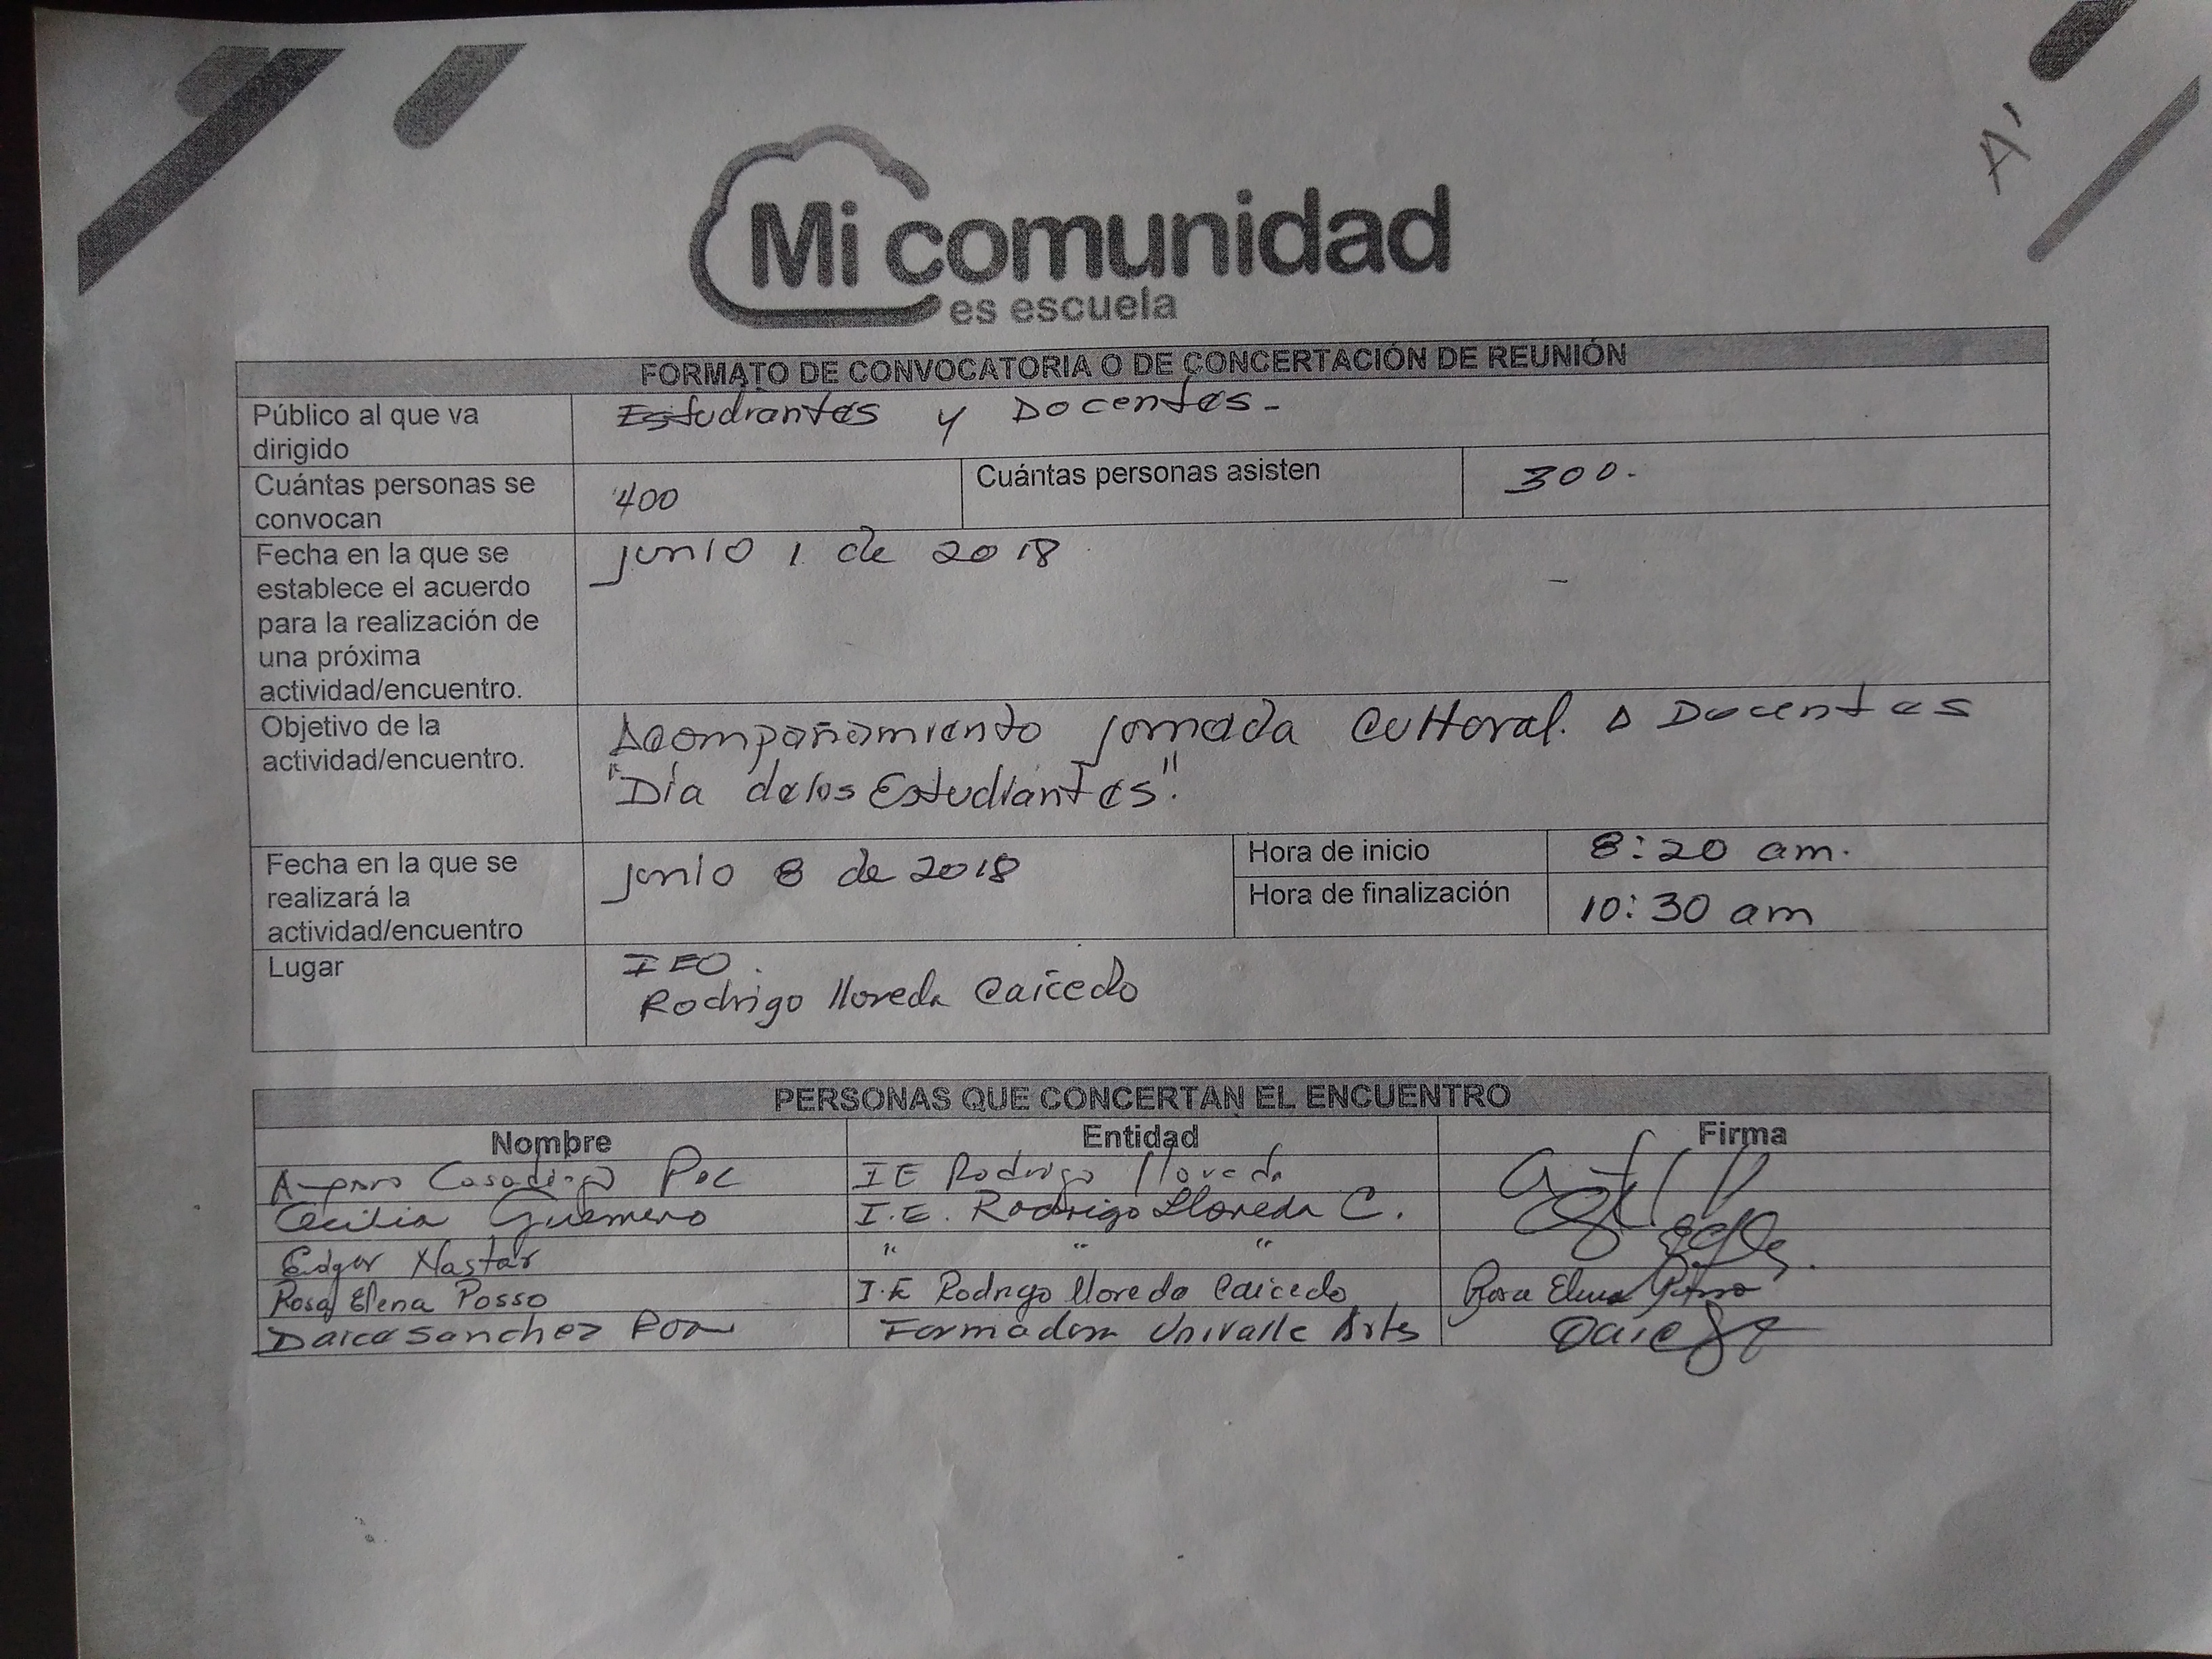 A'
Mi comunidad
es escuela
FORMATO DE CONVOCATORIA O DE CONCERTACIÓN DE REUNIÓN
Público al que va
dirigido
Estudiantes y Docentes-
Cuántas personas se
convocan
400
Cuántas personas asisten
300.
Fecha en la que se
establece el acuerdo
para la realización de
una próxima
actividad/encuentro.
junio 1 de 2018
Objetivo de la
actividad/encuentro.
Acompañamiento jornada Cultural. A Docentes
"Día de los Estudiantes".
Fecha en la que se
realizará la
actividad/encuentro
junio 8 de 2018
Hora de inicio
8:20 am.
Hora de finalización
10:30 am
Lugar
IEO.
Rodrigo lloreda Caicedo
PERSONAS QUE CONCERTAN EL ENCUENTRO
Nombre Entidad Firma
Amparo IE Rodrigo lloreda
Cecilia Guerrero I.E. Rodrigo Lloreda C.
Edgar Nastar " " "
Rosa Elena Posso I.E Rodrigo lloreda Caicedo Rosa Elena Posso
Daica Sanchez Formadora Univalle Artes